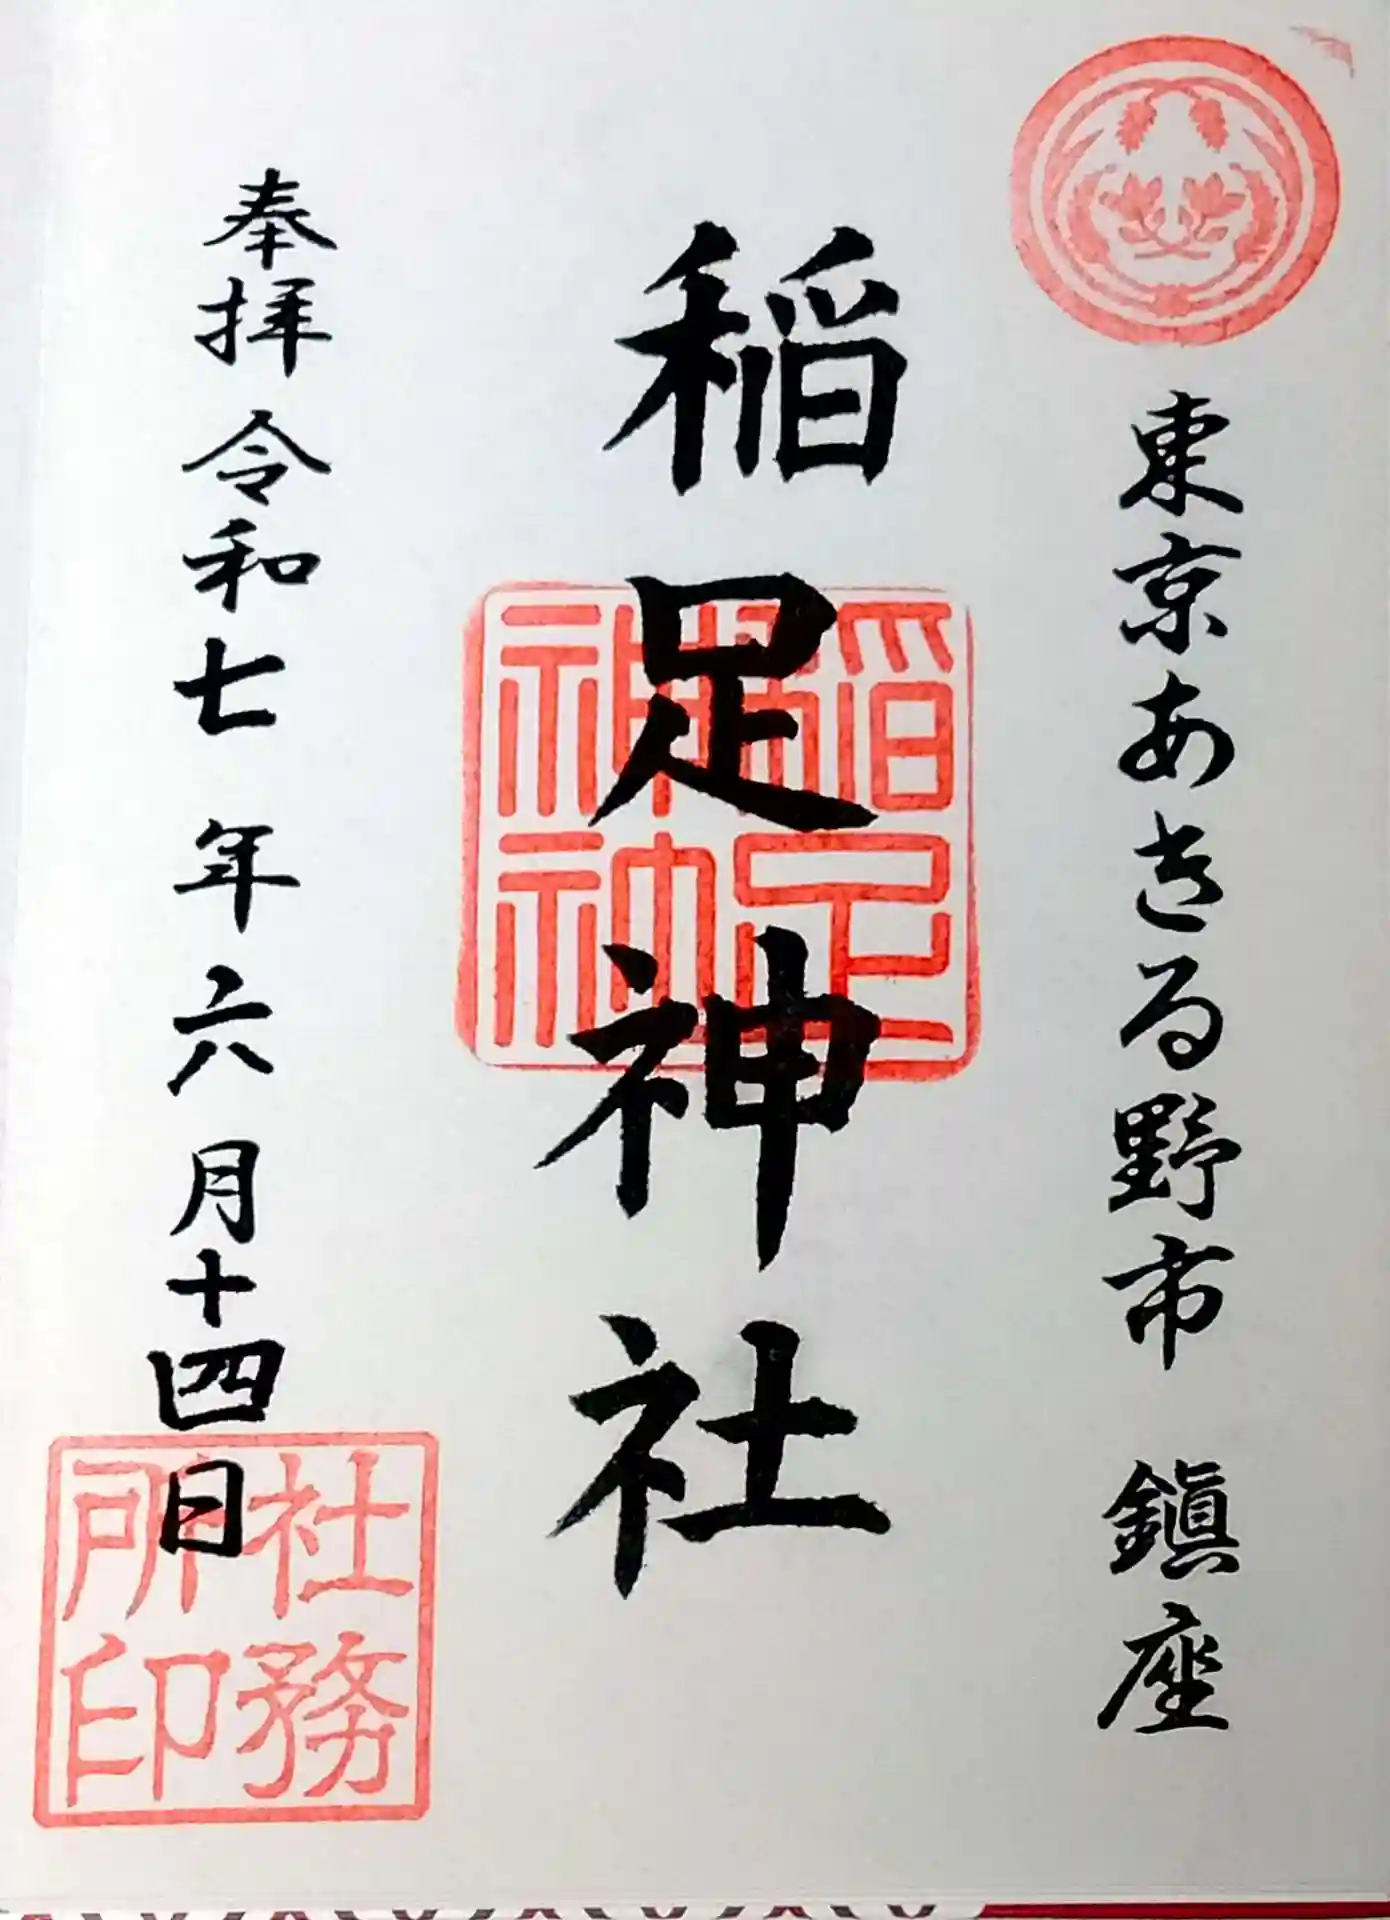 東京あきる野市 鎭座
稲足神社
稲足神社
奉拝 令和七年六月十四日
社務所印